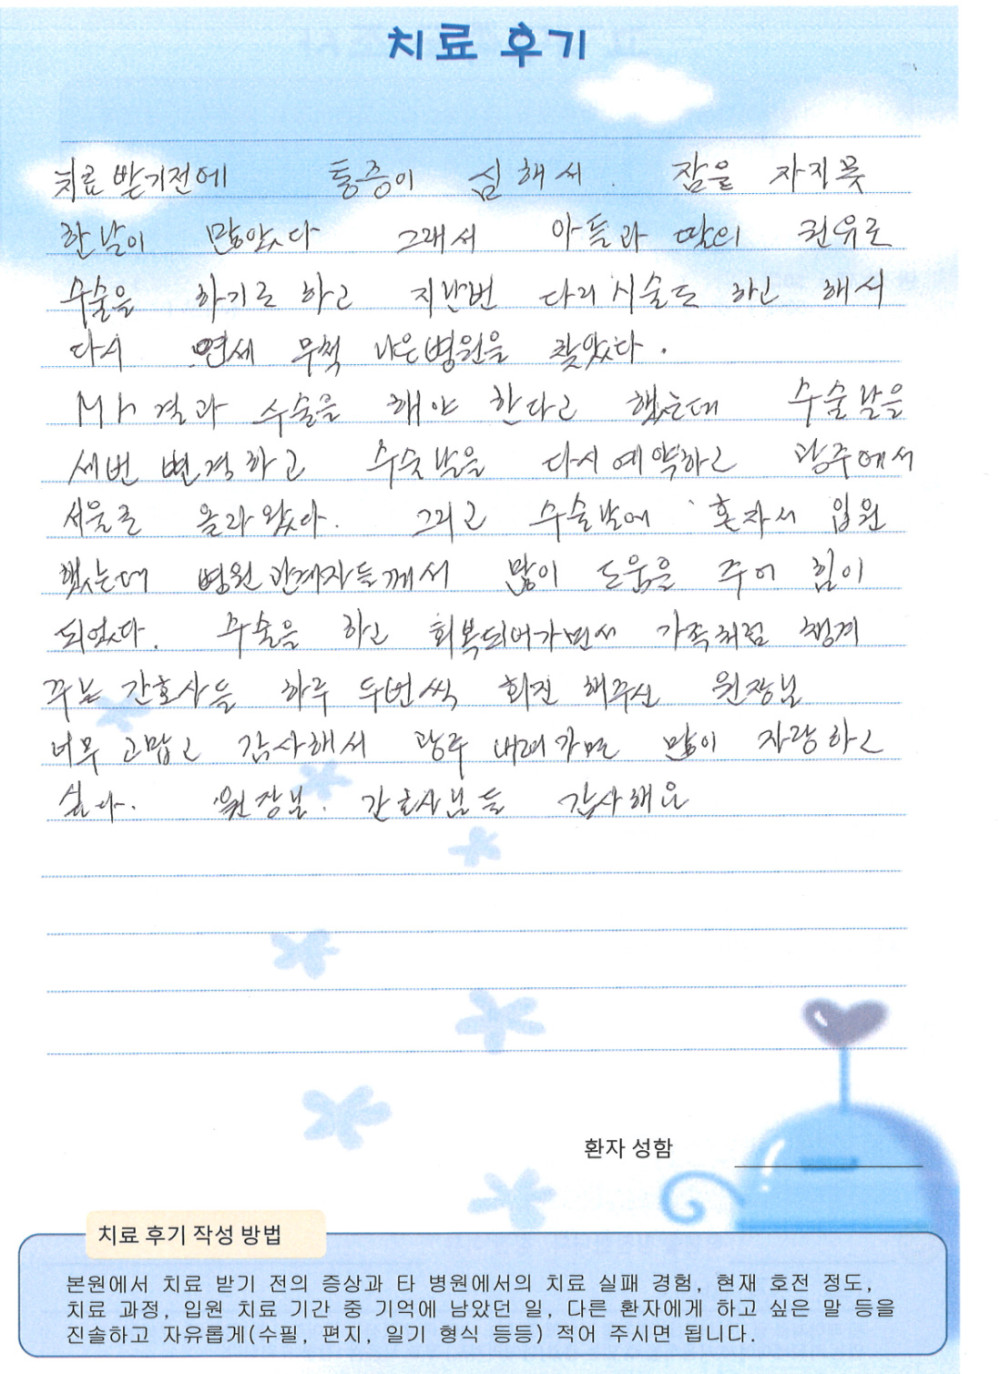 치료 후기
치료 받기전에 통증이 심해서. 잠을 자지못
한날이 많았다 그래서 아들과 딸의 권유로
수술을 하기로 하고 지난번 다리시술도 하고 해서
다시 연세 무척 나은병원을 찾았다.
MRI 결과 수술을 해야 한다고 했는데 수술날을
세번 변경하고 수술날을 다시예약하고 광주에서
서울로 올라왔다. 그리고 수술날에 혼자서 입원
했는데 병원관계자들께서 많이 도움을 주어 힘이
되었다. 수술을 하고 회복되어가면서 가족처럼 챙겨
주는 간호사들 하루 두번씩 회진 해주신 원장님
너무 고맙고 감사해서 광주 내려가면 많이 자랑하고
싶다. 원장님. 간호사님들 감사해요
환자 성함
치료 후기 작성 방법
본원에서 치료 받기 전의 증상과 타 병원에서의 치료 실패 경험, 현재 호전 정도,
치료 과정, 입원 치료 기간 중 기억에 남았던 일, 다른 환자에게 하고 싶은 말 등을
진솔하고 자유롭게(수필, 편지, 일기 형식 등등) 적어 주시면 됩니다.